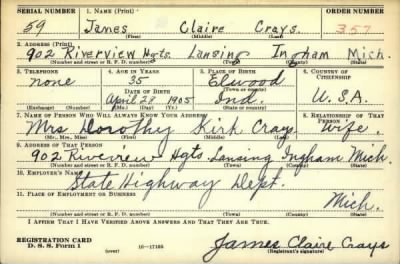 SERIAL NUMBER 1. NAME (Print) ORDER NUMBER
59 James Claire Crays. 357
(First) (Middle) (Last)
2. ADDRESS (Print)
902 Riverview Hgts. Lansing Ingham Mich.
(Number and street or R. F. D. number) (Town) (County) (State)
3. TELEPHONE 4. AGE IN YEARS 5. PLACE OF BIRTH 6. COUNTRY OF CITIZENSHIP
none 35 Elwood
DATE OF BIRTH (Town or county)
April 28 1905 Ind. U.S.A.
(Exchange) (Number) (Mo.) (Day) (Yr.) (State or country)
7. NAME OF PERSON WHO WILL ALWAYS KNOW YOUR ADDRESS 8. RELATIONSHIP OF THAT PERSON
Mrs Dorothy Kirk Crays Wife.
(Mr., Mrs., Miss) (First) (Middle) (Last)
9. ADDRESS OF THAT PERSON
902 Riverview Hgts. Lansing Ingham Mich.
(Number and street or R. F. D. number) (Town) (County) (State)
10. EMPLOYER'S NAME
State Highway Dept.
11. PLACE OF EMPLOYMENT OR BUSINESS
Mich.
(Number and street or R. F. D. number) (Town) (County) (State)
I AFFIRM THAT I HAVE VERIFIED ABOVE ANSWERS AND THAT THEY ARE TRUE.
REGISTRATION CARD
D. S. S. Form 1 (over) 16-17105 James Claire Crays
(Registrant's signature)